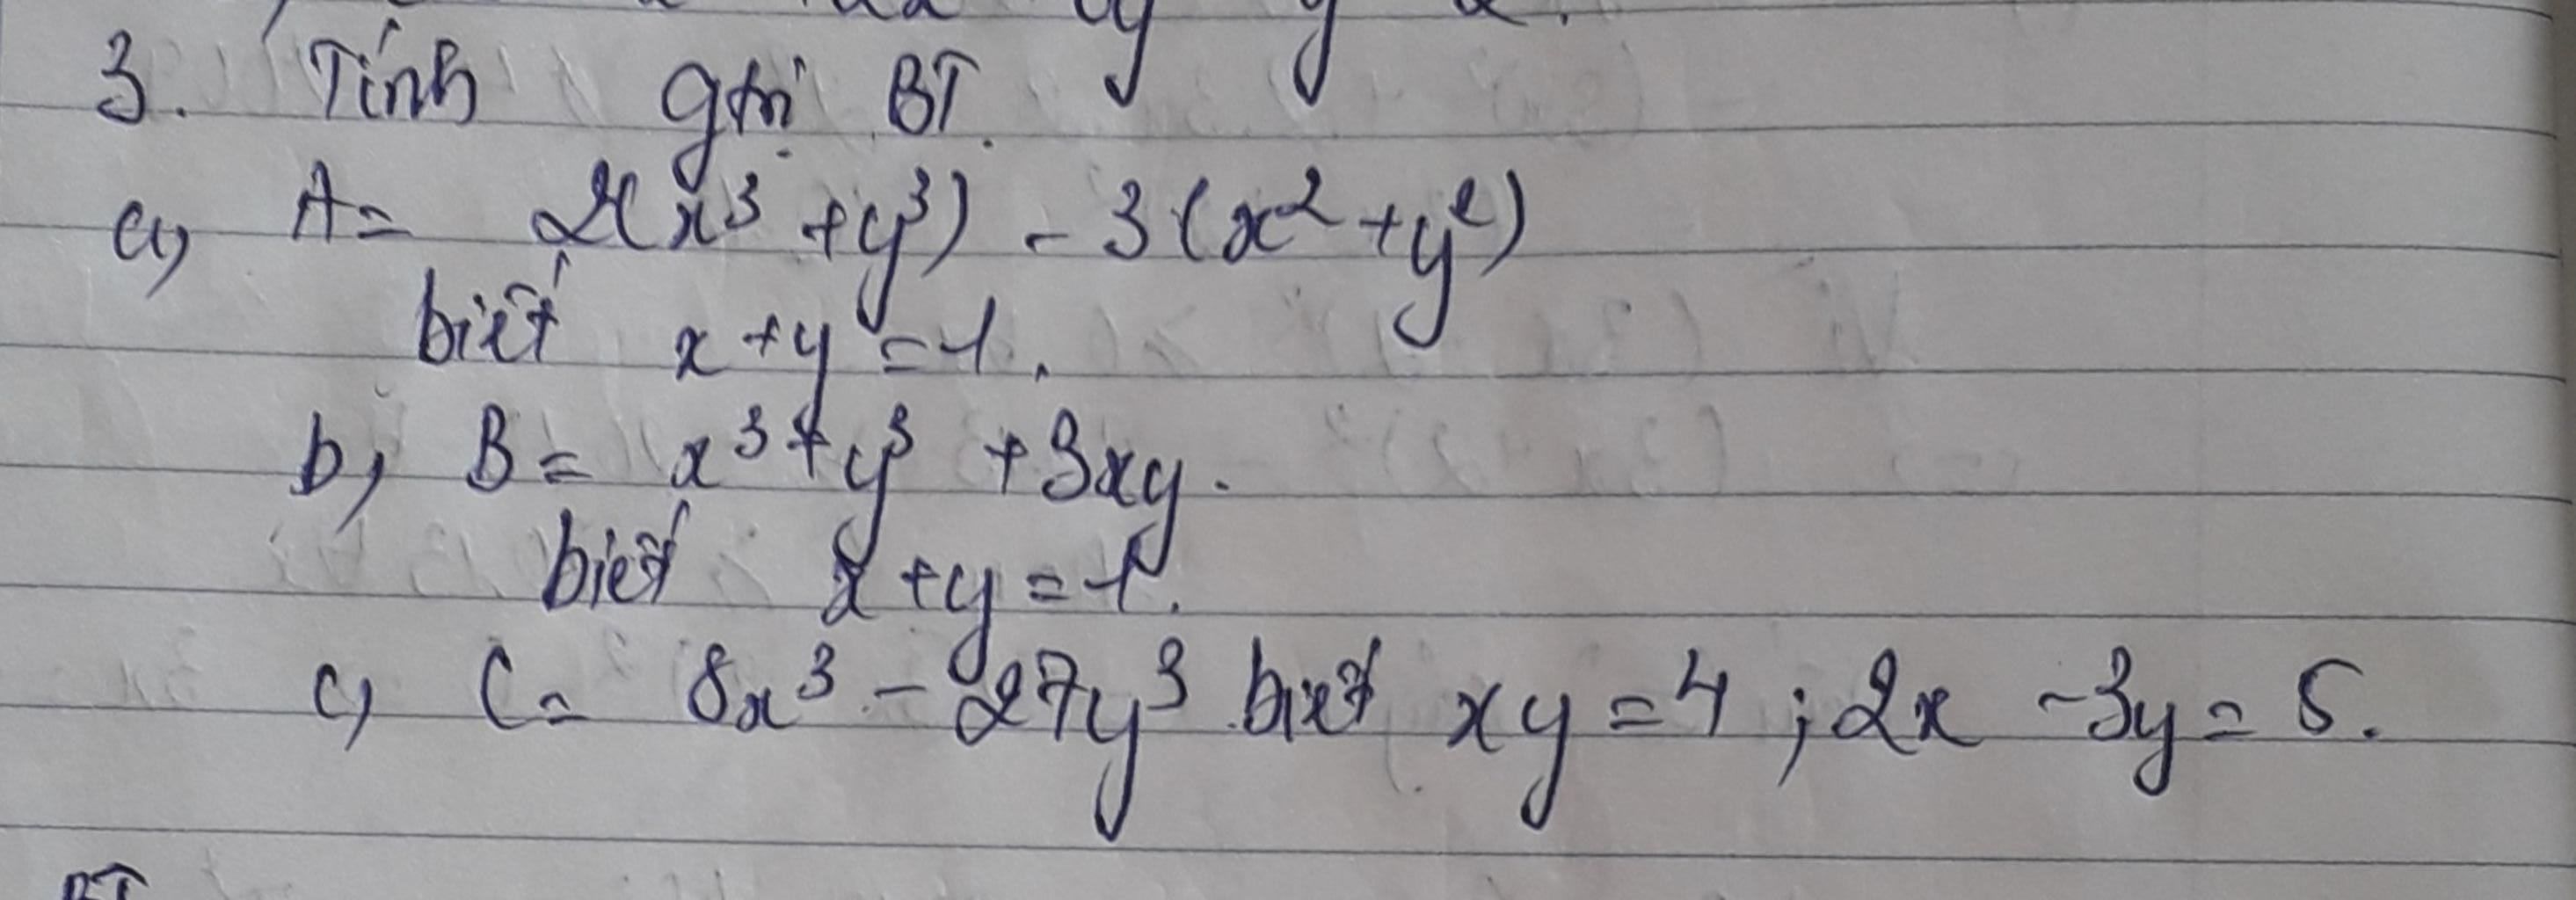 3. Tính gtrị BT.
a, A = 2(x³ + y³) - 3(x² + y²)
biết x + y = 1.
b, B = x³ + y³ + 3xy.
biết x + y = 1.
c, C = 8x³ - 27y³ biết xy = 4 ; 2x - 3y = 5.
BT